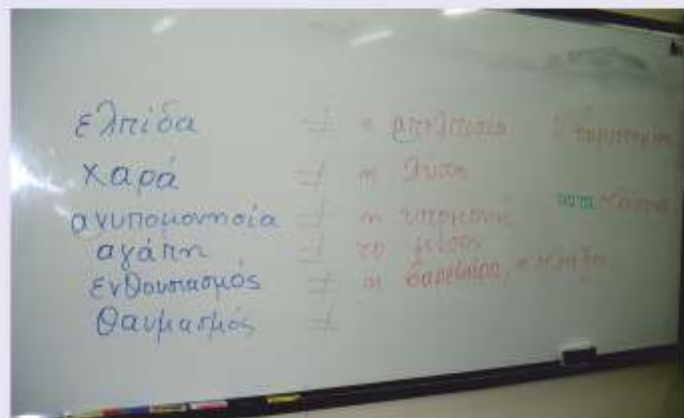 ελπίδα ≠ η απελπισία
χαρά ≠ η λύπη
ανυπομονησία ≠ η υπομονή
αγάπη ≠ το μίσος
ενθουσιασμός ≠ η βαρεμάρα, η πλήξη
θαυμασμός ≠